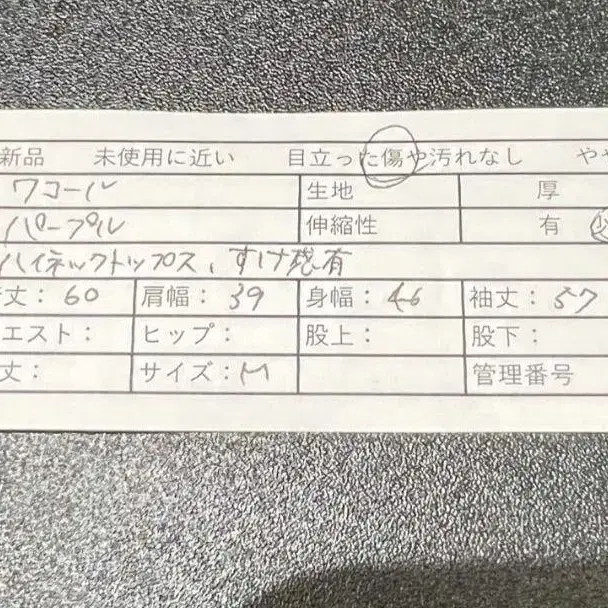 新品 未使用に近い 目立った傷や汚れなし やや
ワコール 生地 厚
パープル 伸縮性 有 少
ハイネックトップス、すけ感有
丈：60 肩幅：39 身幅：46 袖丈：57
エスト： ヒップ： 股上： 股下：
丈： サイズ：M 管理番号